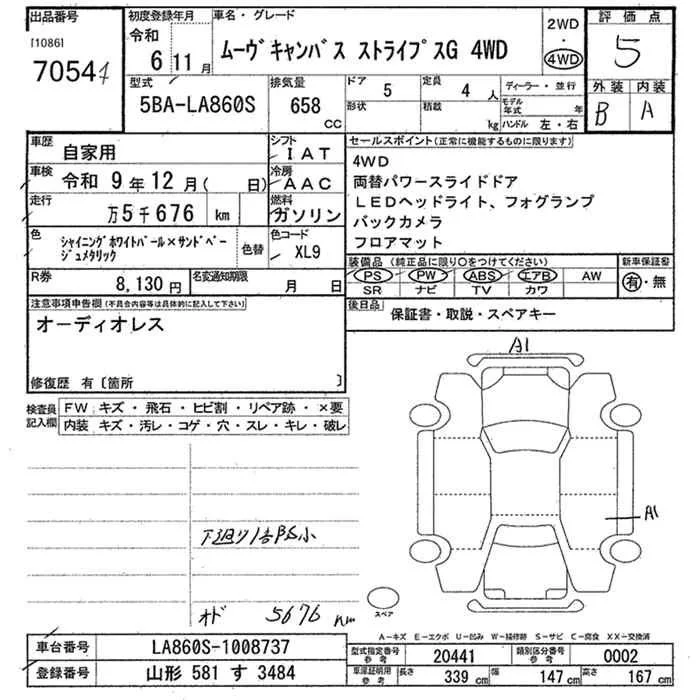 出品番号
[1086]
7054
初度登録年月
令和 6 11月
車名・グレード
ムーヴキャンバス ストライプスG 4WD
2WD
・
4WD
評価点
5
外装 内装
B A
型式
5BA-LA860S
排気量
658 CC
ドア 5
形状
定員 4 人
積載 kg
ディーラー・並行
モデル年式 年
ハンドル 左・右
車歴 自家用
シフト IAT
車検 令和 9年12月( 日)
冷房 AAC
走行 万5千676 km
燃料 ガソリン
色 シャイニングホワイトパール×サンドベージュメタリック
色替
色コード XL9
R券 8,130円
名変通知期限 月 日
セールスポイント(正常に機能するものに限ります)
4WD
両替パワースライドドア
LEDヘッドライト、フォグランプ
バックカメラ
フロアマット
装備品(純正品に限り○をつけてください)
新車保証書
PS PW ABS エアB AW
SR ナビ TV カワ
有・無
後日品 保証書・取説・スペアキー
注意事項申告欄(不具合内容等は具体的に記入して下さい)
オーディオレス
修復歴 有〔箇所 〕
検査員記入欄
FW キズ・飛石・ヒビ割・リペア跡・×要
内装 キズ・汚レ・コゲ・穴・スレ・キレ・破レ
A1
A1
下廻り 小
オド 5676 km
スペア
A-キズ E-エクボ U-凹み W-補修跡 S-サビ C-腐食 XX-交換済
車台番号 LA860S-1008737
登録番号 山形 581 す 3484
型式指定番号 参考 20441
類別区分番号 参考 0002
車庫証明用 参考 長さ 339 cm 幅 147 cm 高さ 167 cm